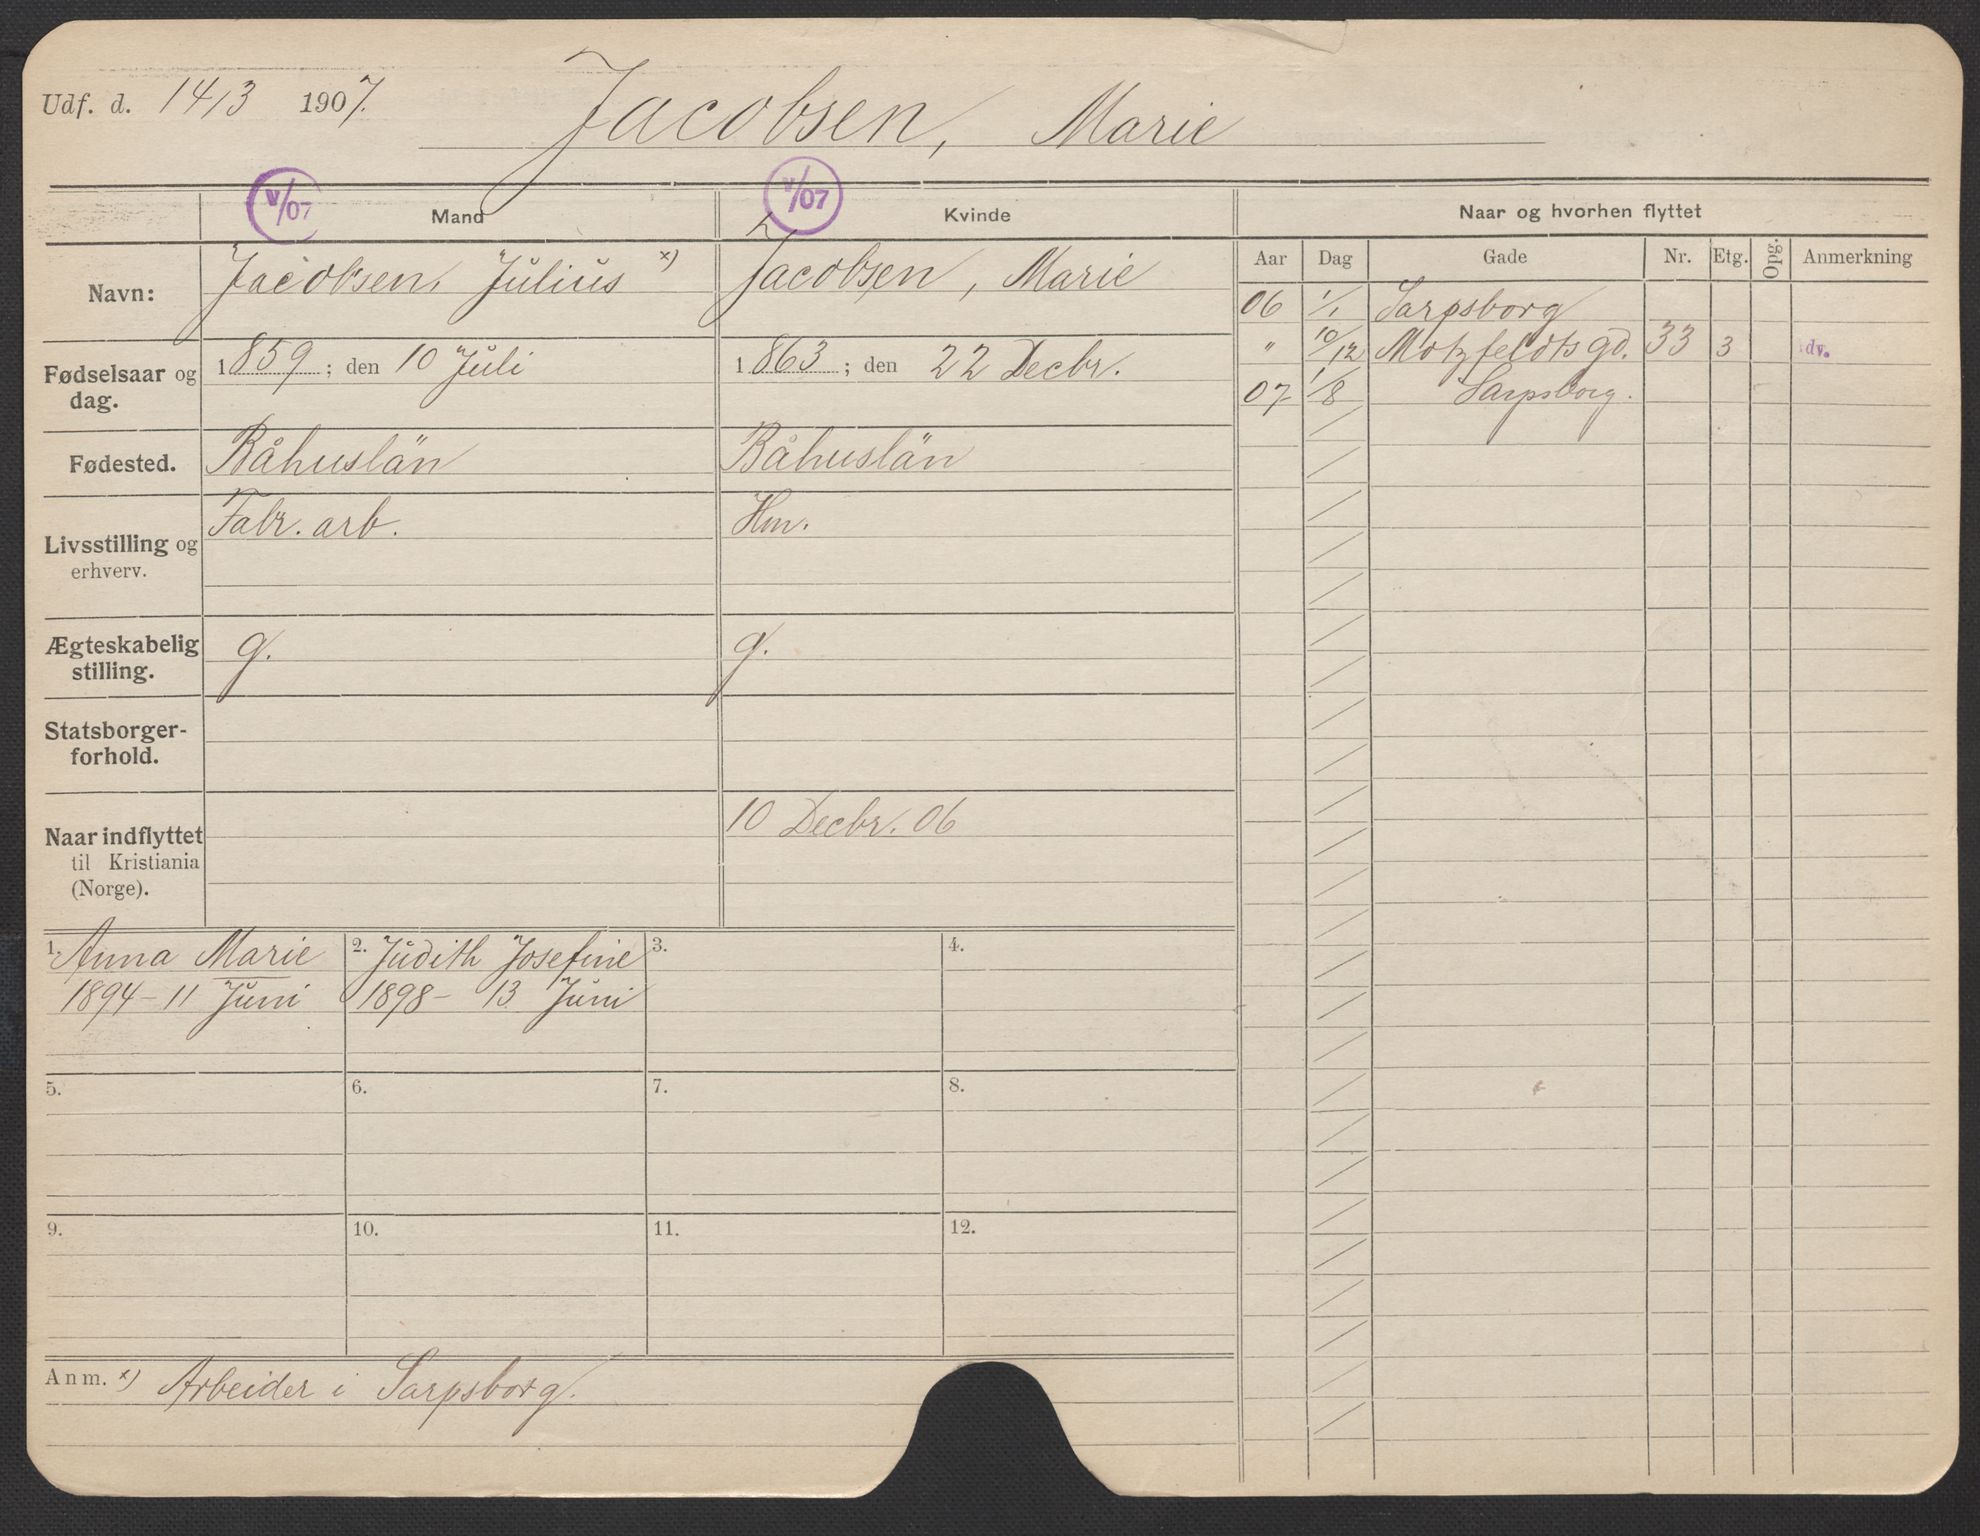 Udf. d. 14/3 1907.
Jacobsen, Marie
V/07
V/07
Mand
Kvinde
Navn:
Jacobsen, Julius x)
Jacobsen, Marie
Fødselsaar og dag.
1859; den 10 Juli
1863; den 22 Decbr.
Fødested.
Båhuslän
Båhuslän
Livsstilling og erhverv.
Fabr. arb.
Hm.
Ægteskabelig stilling.
g.
g.
Statsborger-
forhold.
Naar indflyttet
til Kristiania
(Norge).
10 Decbr. 06
1. Anna Marie
1894 - 11 Juni
2. Judith Josefine
1898 - 13 Juni
3.
4.
5.
6.
7.
8.
9.
10.
11.
12.
Anm. x) Arbeider i Sarpsborg.
Naar og hvorhen flyttet
Aar Dag Gade Nr. Etg. Opg. Anmerkning
06 1/1 Sarpsborg
" 10/12 Motzfeldts gd. 33 3 dv.
07 1/8 Sarpsborg.